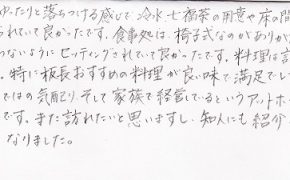 ゆったりと落ちつける感じで冷水・七福茶の用意や床の間
られていて良かったです。食事処は、椅子式なのがありがた
わないようにセッティングされていて良かったです。料理は言
。特に板長おすすめの料理が良い味で満足でし
ではの気配り そして家族で経営しているというアットホー
です。また訪れたいと思いますし、知人にも紹介
なりました。